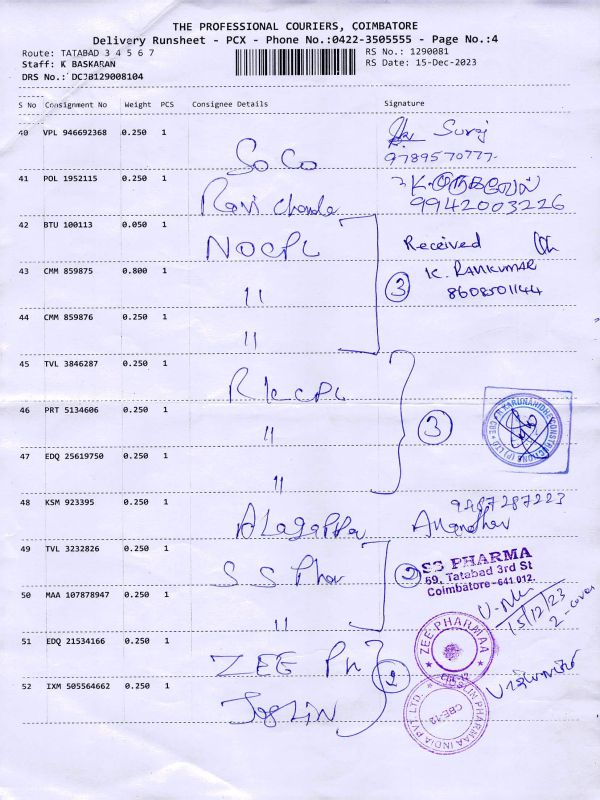 THE PROFESSIONAL COURIERS, COIMBATORE
Delivery Runsheet - PCX - Phone No.:0422-3505555 - Page No.:4
Route: TATABAD 3 4 5 6 7 RS No.: 1290081
Staff: K BASKARAN RS Date: 15-Dec-2023
DRS No.: DCJB129008104
S No Consignment No Weight PCS Consignee Details Signature
40 VPL 946692368 0.250 1 SoCo Suraj
9789570777
41 POL 1952115 0.250 1 Ravi Chande K.
9942003226
42 BTU 100113 0.050 1 NOCPL Received
43 CMM 859875 0.800 1 11 3 K. RAVIKUMAR
8608501144
44 CMM 859876 0.250 1 11
45 TVL 3846287 0.250 1 RKCCPL
46 PRT 5134606 0.250 1 11 3
47 EDQ 25619750 0.250 1 11
48 KSM 923395 0.250 1 Alagappa 9487287223
49 TVL 3232826 0.250 1 S S Phar 2 SS PHARMA
59, Tatabad 3rd St
Coimbatore-641 012.
50 MAA 107878947 0.250 1 11 15/12/23
2 cover
51 EDQ 21534166 0.250 1 ZEE Ph 2 ZEE PHARMAA
CBE-12
52 IXM 505564662 0.250 1 Joslin JOSLIN PHARMAA INDIA PVT. LTD.
CBE-12.